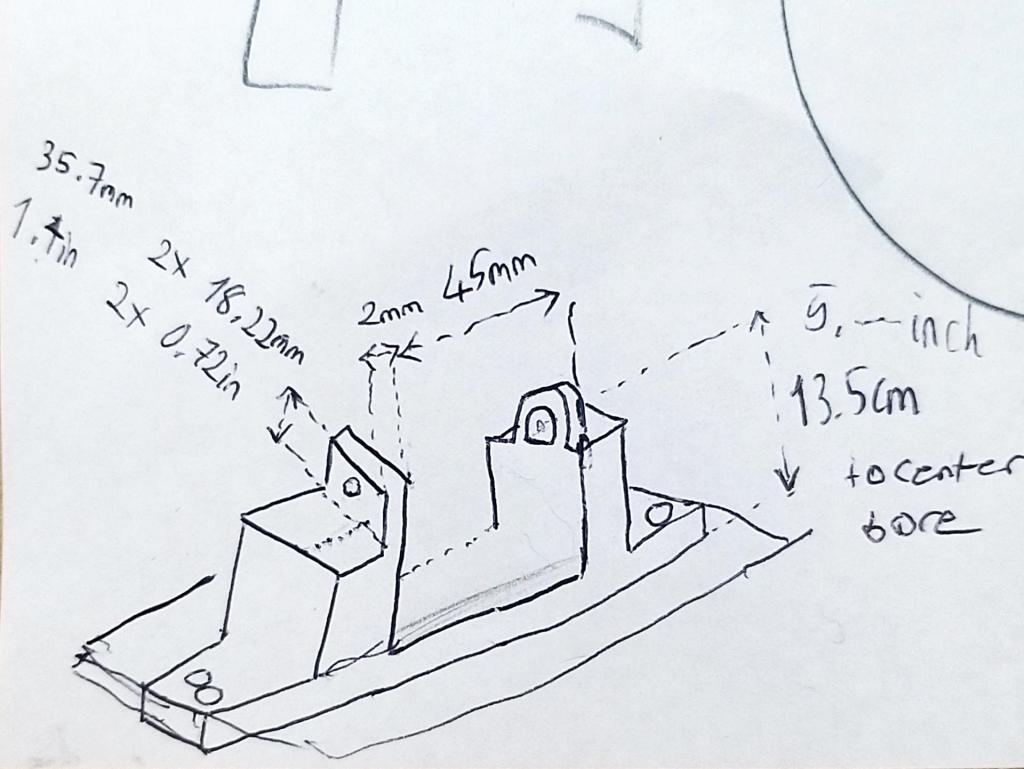 35.7mm
1.4in
2x 18,22mm
2x 0.72in
2mm
45mm
5.— inch
13.5cm
to center
bore